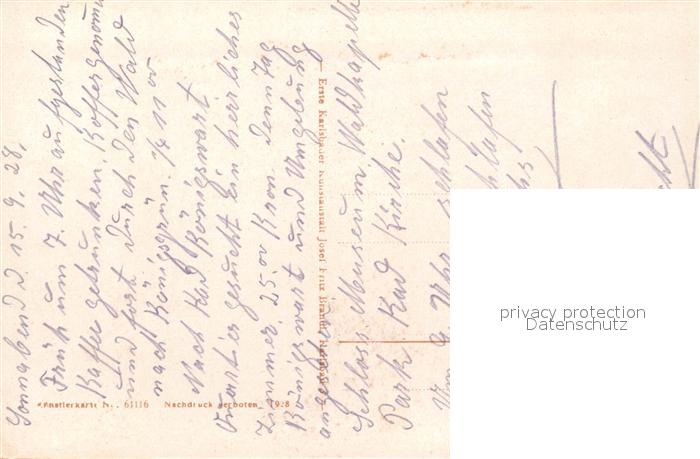 Sonnabend d. 15. 9. 28.
Früh um 7. Uhr aufgestanden
Kaffee getrunken. Koffer genomm
und fort durch den Wald
nach Königsgrün. 1/4 11 00
Nach Bad Königswart
Quartier gesucht ein herrliches
Zimmer. 25.00 Kron. den Tag
Königswart und Umgebung
Schloss Museum Waldkapelle
Park Bad Kirche.
Um 9 Uhr schlafen
Erste Karlsbader Kunstanstalt Josef Fritz Brandl
Künstlerkarte Nr. 61116 Nachdruck verboten 1928
privacy protection
Datenschutz